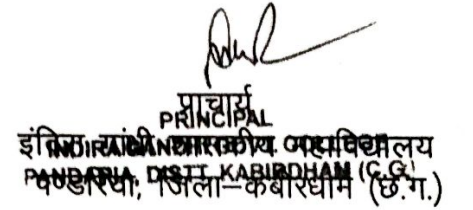 प्राचार्य
PRINCIPAL
इंदिरा गांधी शासकीय महाविद्यालय
INDIRA GANDHI GOVT. COLLEGE
PANDARIA, DISTT. KABIRDHAM (C.G.)
पण्डरिया, जिला–कबीरधाम (छ.ग.)